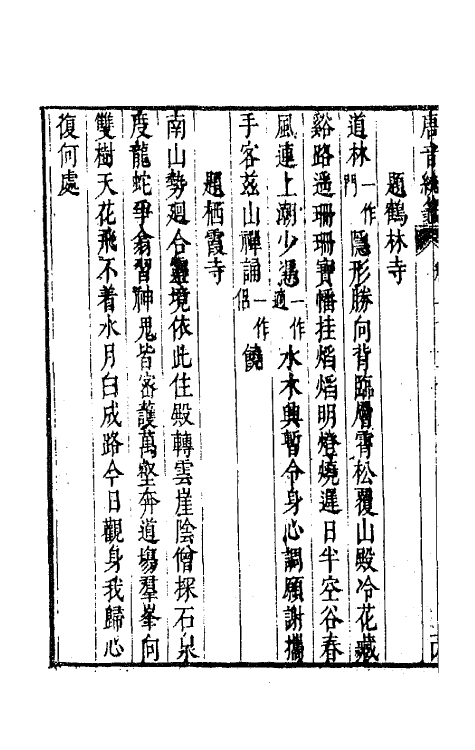 唐音統籤
題鶴林寺
道林一作門隱形勝向背臨層霄松覆山殿冷花藏
谿路遥珊珊寶幡挂焰焰明燈燒遲日半空谷春
風連上潮少憑一作適水木興暫令身心調願謝攜
手客兹山禪誦一作侶饒
題栖霞寺
南山勢廻合靈境依此住殿轉雲崖陰僧探石泉
度龍蛇爭翕習神鬼皆密護萬壑奔道場羣峯向
雙樹天花飛不着水月白成路今日觀身我歸心
復何處